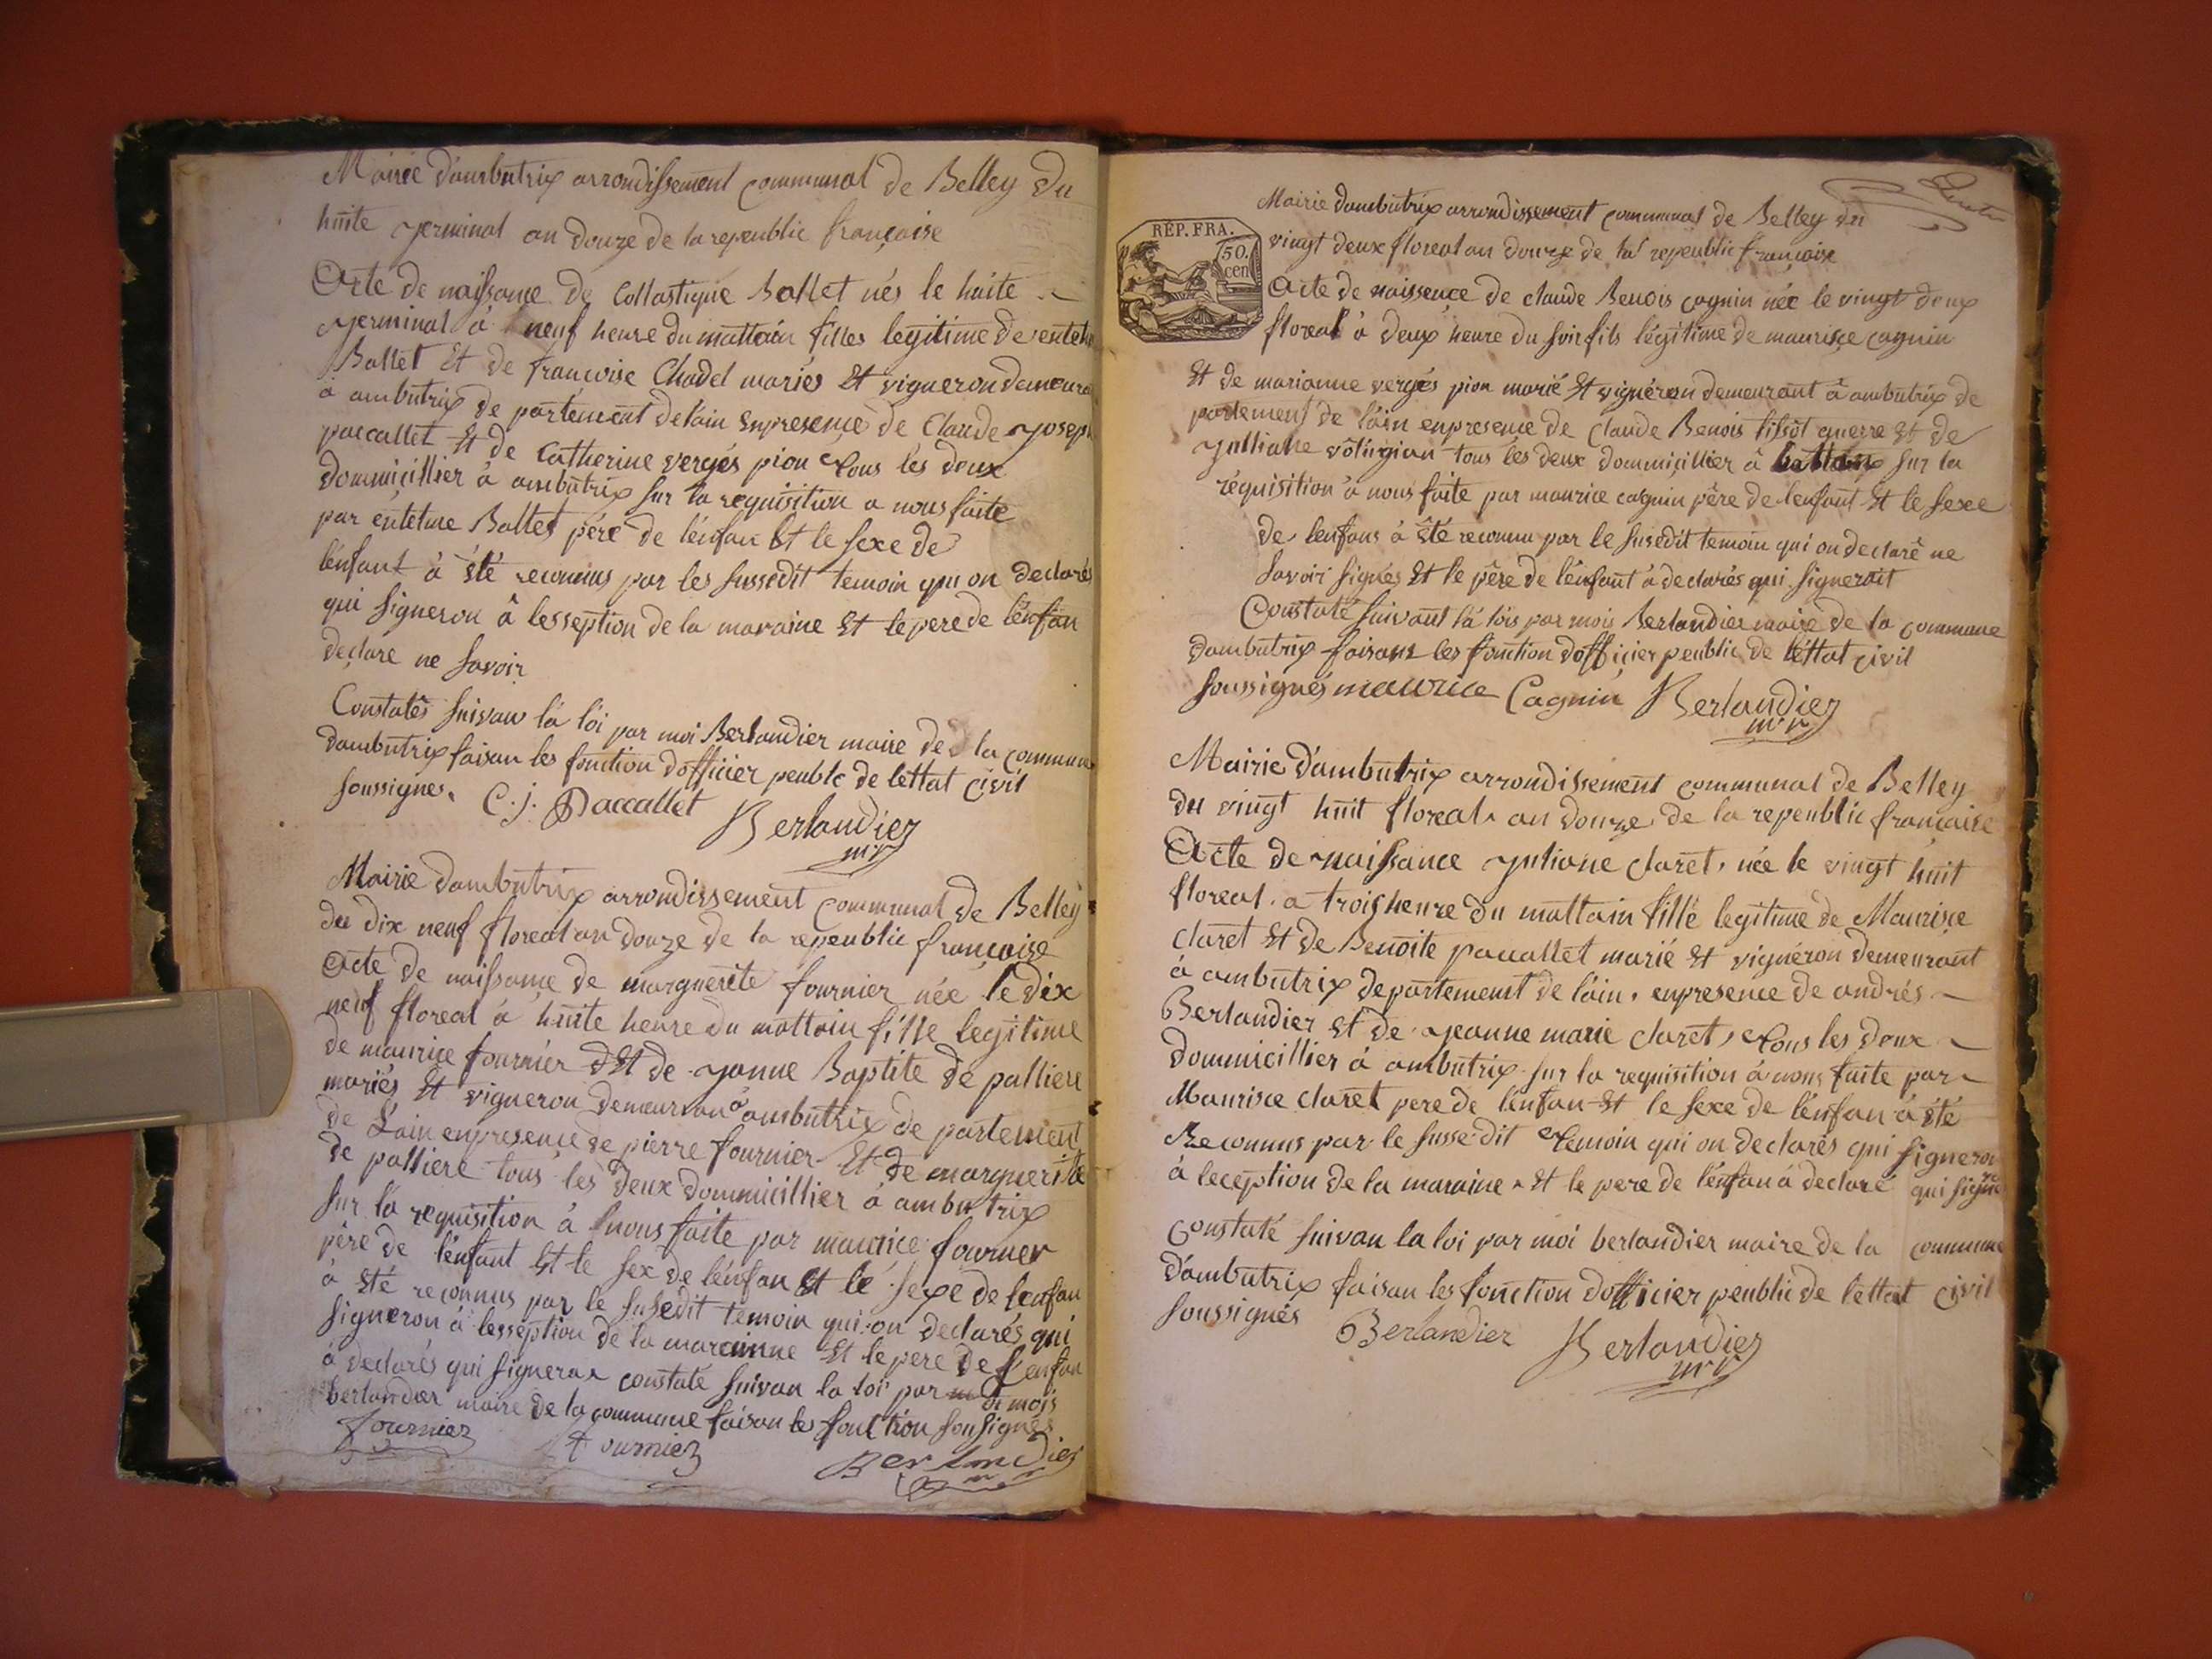 Mairie d'ambutrix arrondissement communal de Belley du
huite germinal an douze de la republic françoise
Acte de naissance de Collastique Ballet nés le huite
germinal à neuf heure du mattain filles legitime de
Ballet Et de françoise Chadel mariés Et vigneron demeura
à ambutrix de partement de lain enpresençe de Claude joseph
paccallet Et de Catherine vergés pion tous les deux
dommiçillier à ambutrix sur la requisition a nous faite
par Ballet pére de lénfan Et le sexe de
lénfant à été reconnus par les sussedit temoin qui on declarés
qui signeron â lesseption de la maraine Et le pere de lénfan
declare ne savoir
Constatés suivan lá lói par moi Berlandier maire de la commun
dambutrix faisan les fonction dofficier peublc de lettat çivil
soussignes. C. j. Paccallet Berlandier
mr
Mairie dambutrix arrondissement communal de Belley
du dix neuf floreal an douze de la repeublic françoise
Acte de naissance de marguerite fournier née le dix
neuf floreal á huite heure du mattain fille legitime
de maurice fournier Et de janne Baptite de palliere
mariés Et vigneron demeuran à ambutrix de partement
de Láin enpresençe de pierre fournier Et de marguerite
de palliere tous les deux dommicillier á ambutrix
sur la requisition à nous faite par maurice fournier
père de lénfant Et le sex de lénfan Et le sexe de lenfan
à été reconnus par le susedit temoin qui on declarés qui
signeron à lesseption de la marainne Et le pere de lenfan
à declarés qui signera constaté suivan la loi par de mois
berlandier maire de la commune faisan les fonction sousignés
fournier fournier Berlandier
Mairie dambutrix arrondissement communal de Belley du
RÉP. FRA.
50.
cen
vingt deux floreal an douze de la repeublic françoise
Acte de naissençe de claude Benois cagnin née le vingt deux
floreal à deux heure du soir fils légitime de maurisçe cagnin
Et de marianne vergés pion marié Et vignéron demeurant â ambutrix de
partement de láin enpresence de Claude Benois tissot guerre Et de
julliane tous les deux dommiçillier â sur la
réquisition à nous faite par maurice cagnin père de lenfant Et le sexe
de lenfans à été reconnu par le susedit temoin qui on declaré ne
savoir signés Et le père de lénfant à declarés qui signerait
Constaté suivant lá lois par mois Berlandier maire de la commune
dambutrix faisans les fonction dofficier peublic de léttat çivil
soussignés maurice Cagnin Berlandier
mr
Mairie d'ambutrix arrondissement communal de Belley
du vingt huit floreal an douze de la repeublic françaisé
Acte de naissance juliane claret, née le vingt huit
floreal a trois heure du mattain fille legitime de Maurisçe
claret Et de Benoite paccallet marié Et vignéron demeurant
à ambutrix departement de láin, enpresence de andrés
Berlandier et de jeanne marie claret, tous les deux
dommicillier á ambutrix sur la requisition à nous faite par
Maurisce claret pere de lénfan Et le sexe de lénfan à été
Reconnus par le sussedit temoin qui on declarés qui signeron
à leception de la maraine Et le pere de lénfan á declaré qui signe
constaté suivan la loi par moi berlandier maire de la commune
d'ambutrix faisan les fonction dofficier peublic de lettat civil
soussignés Berlandier Berlandier
mr